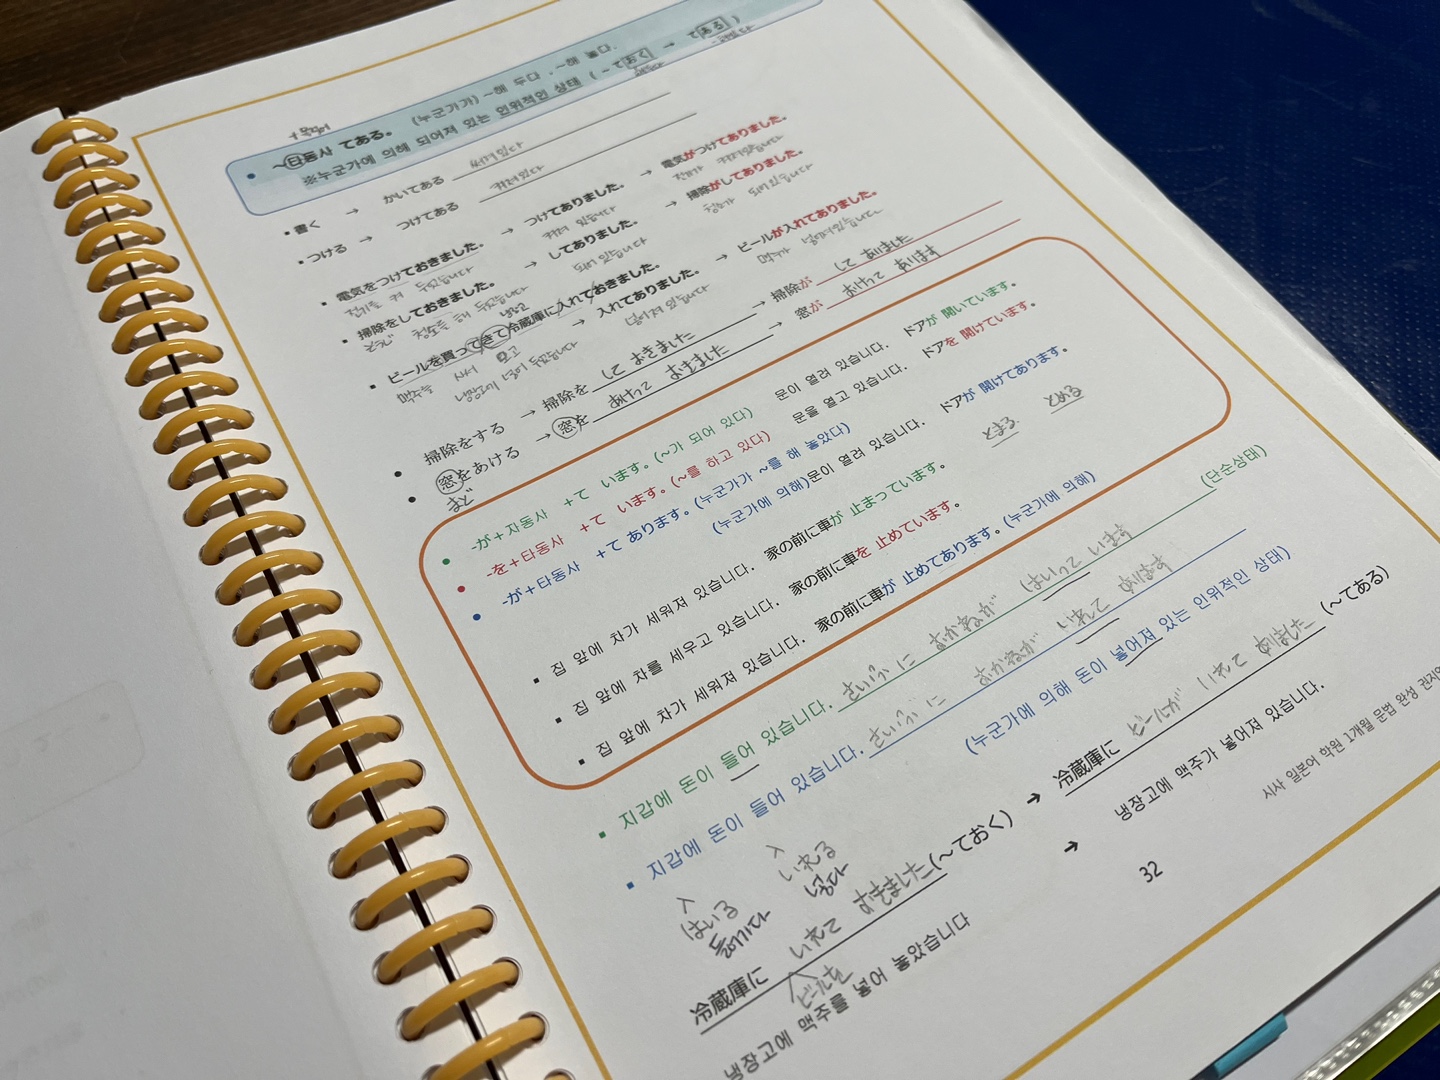 + 목적어
• ~타동사 てある。 (누군가가) ~해 두다. ~해 놓다.
※누군가에 의해 되어져 있는 인위적인 상태 ( ~ておく → てある )
• 書く → かいてある 써져있다
• つける → つけてある 켜져있다
• 電気をつけておきました。 → つけてありました。 → 電気がつけてありました。
전기를 켜 두었습니다 켜져 있습니다 전기가 켜져있습니다
• 掃除をしておきました。 → してありました。 → 掃除がしてありました。
そうじ 청소를 해 두었습니다 되어 있습니다 청소가 되어있습니다
• ビールを買ってきて冷蔵庫に入れておきました。 → 入れてありました。 → ビールが入れてありました。
맥주를 사서 오고 냉장고에 넣어 두었습니다 넣어져 있습니다 맥주가 넣어져있습니다
• 掃除をする → 掃除を して おきました → 掃除が して ありました
• 窓をあける → 窓を あけて おきました → 窓が あけて あります
まど
• -が+자동사 +て います。(~가 되어 있다) 문이 열려 있습니다. ドアが 開いています。
• -を+타동사 +て います。(~를 하고 있다) 문을 열고 있습니다. ドアを 開けています。
• -が+타동사 +て あります。(누군가가 ~를 해 놓았다)
(누군가에 의해)문이 열려 있습니다. ドアが 開けてあります。
とまる とめる
▪ 집 앞에 차가 세워져 있습니다. 家の前に車が 止まっています。
▪ 집 앞에 차를 세우고 있습니다. 家の前に車を 止めています。
▪ 집 앞에 차가 세워져 있습니다. 家の前に車が 止めてあります。(누군가에 의해)
▪ 지갑에 돈이 들어 있습니다. さいふに おかねが はいって います (단순상태)
▪ 지갑에 돈이 들어 있습니다. さいふに おかねが いれて あります
(누군가에 의해 돈이 넣어져 있는 인위적인 상태)
入 はいる 들어가다
入 いれる 넣다
冷蔵庫に いれて おきました(~ておく) → 冷蔵庫に ビールが いれて ありました (~てある)
ビールを
냉장고에 맥주를 넣어 놓았습니다 → 냉장고에 맥주가 넣어져 있습니다.
시사 일본어 학원 1개월 문법 완성
32